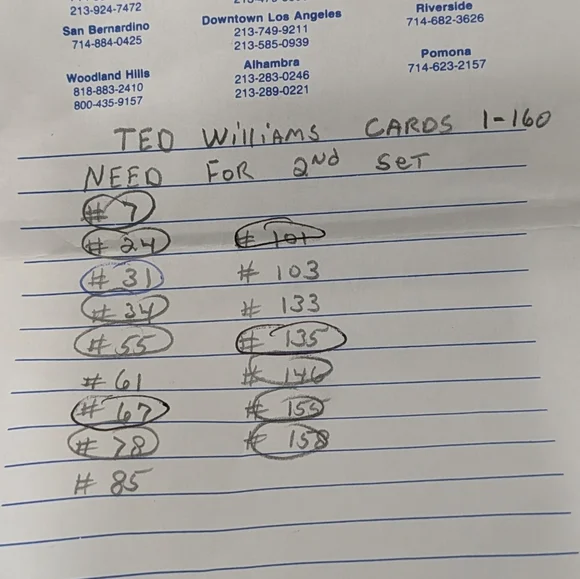 213-924-7472
San Bernardino
714-884-0425
Woodland Hills
818-883-2410
800-435-9157
Downtown Los Angeles
213-749-9211
213-585-0939
Alhambra
213-283-0246
213-289-0221
Riverside
714-682-3626
Pomona
714-623-2157
TED WilliAMS CARDS 1-160
NEED FOR 2Nd SET
# 7
# 24
# 31
# 34
# 55
# 61
# 67
# 78
# 85
# 101
# 103
# 133
# 135
# 146
# 155
# 158